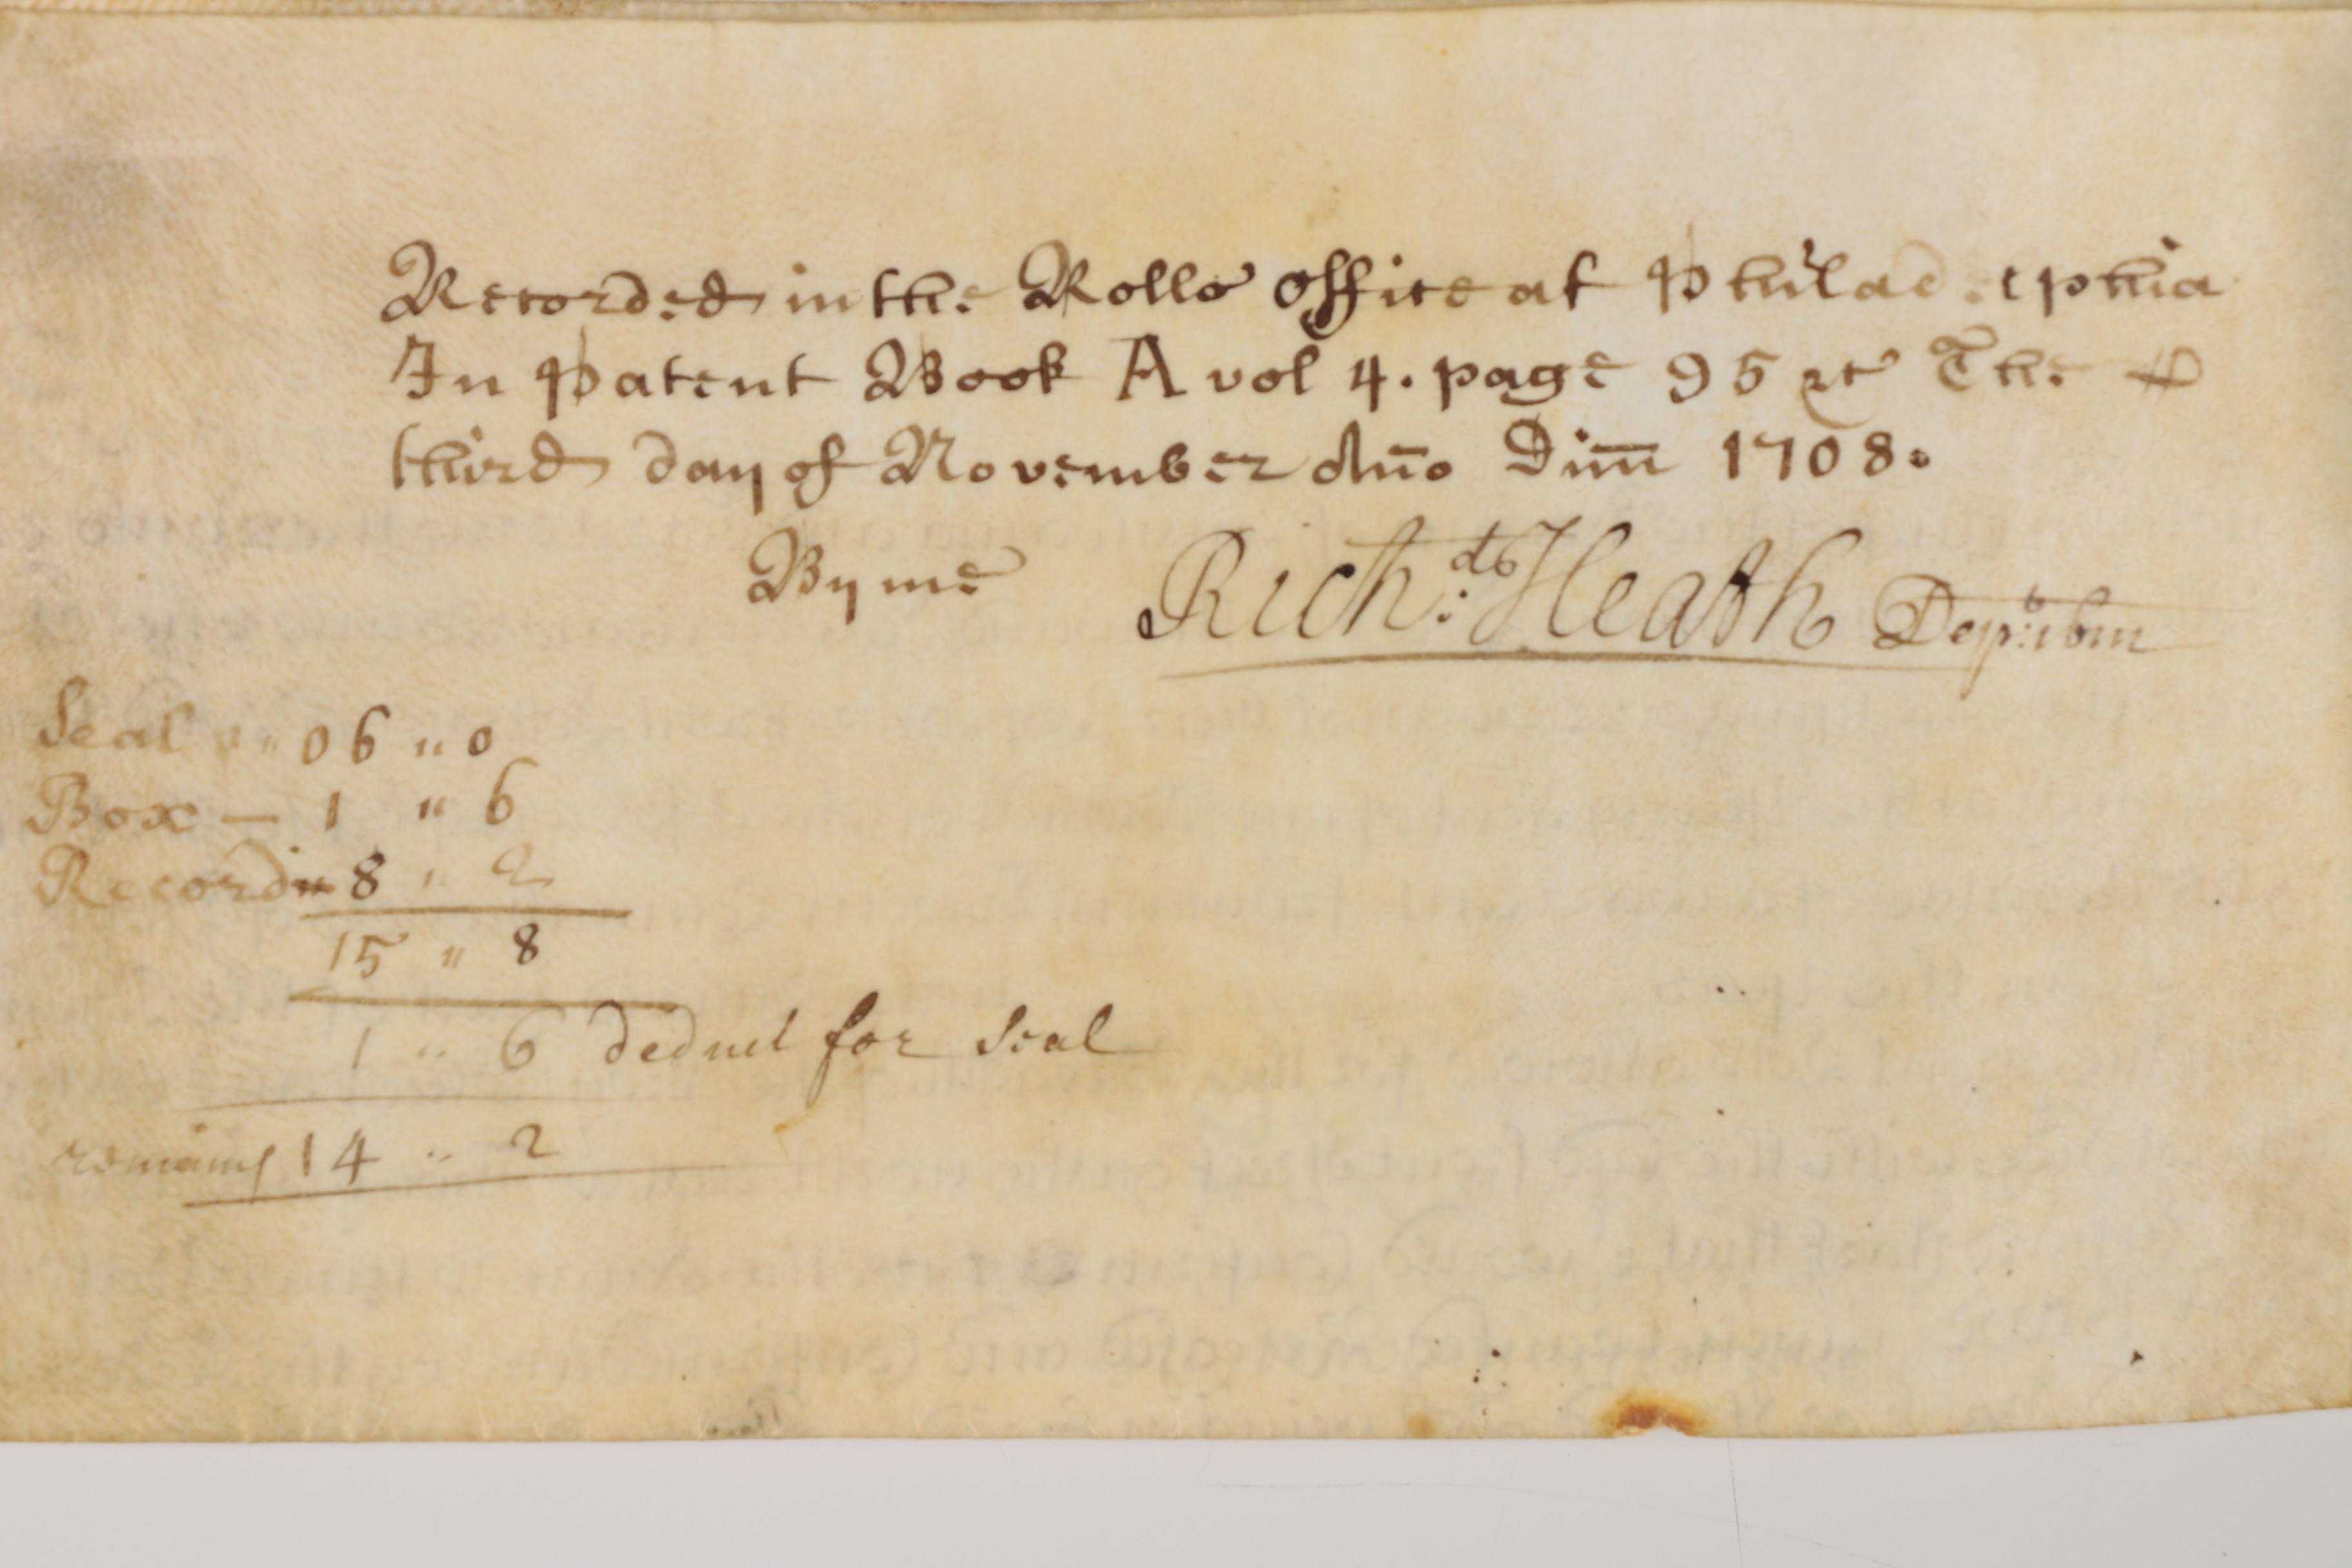 Recorded in the Rolls office at Philadelphia
In Patent Book A vol 4. page 95 &c The
third day of November Año Dim̄ 1708.
By me Rich:ds Heath Dep: ibm
Seal " " 06 " 0
Box — 1 " 6
Recordin 8 " 2
15 " 8
1 " 6 deduct for Seal
remains 14 " 2